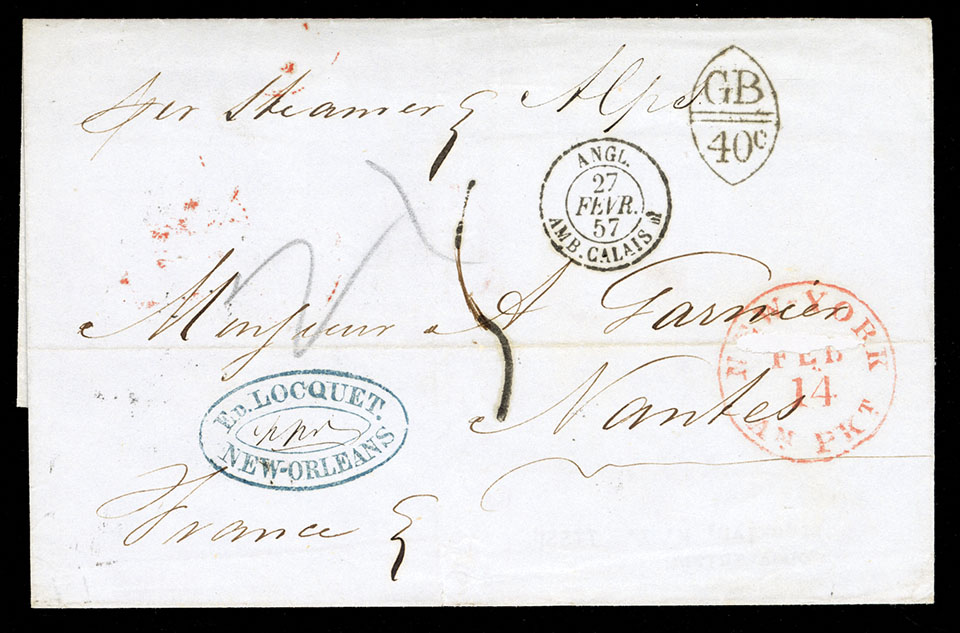 per Steamer Alps
GB
40c
ANGL.
27
FEVR.
57
AMB. CALAIS
Monsieur A Garnier
NEW-YORK
FEB
14
AM PKT
Nantes
ED. LOCQUET.
NEW-ORLEANS
France